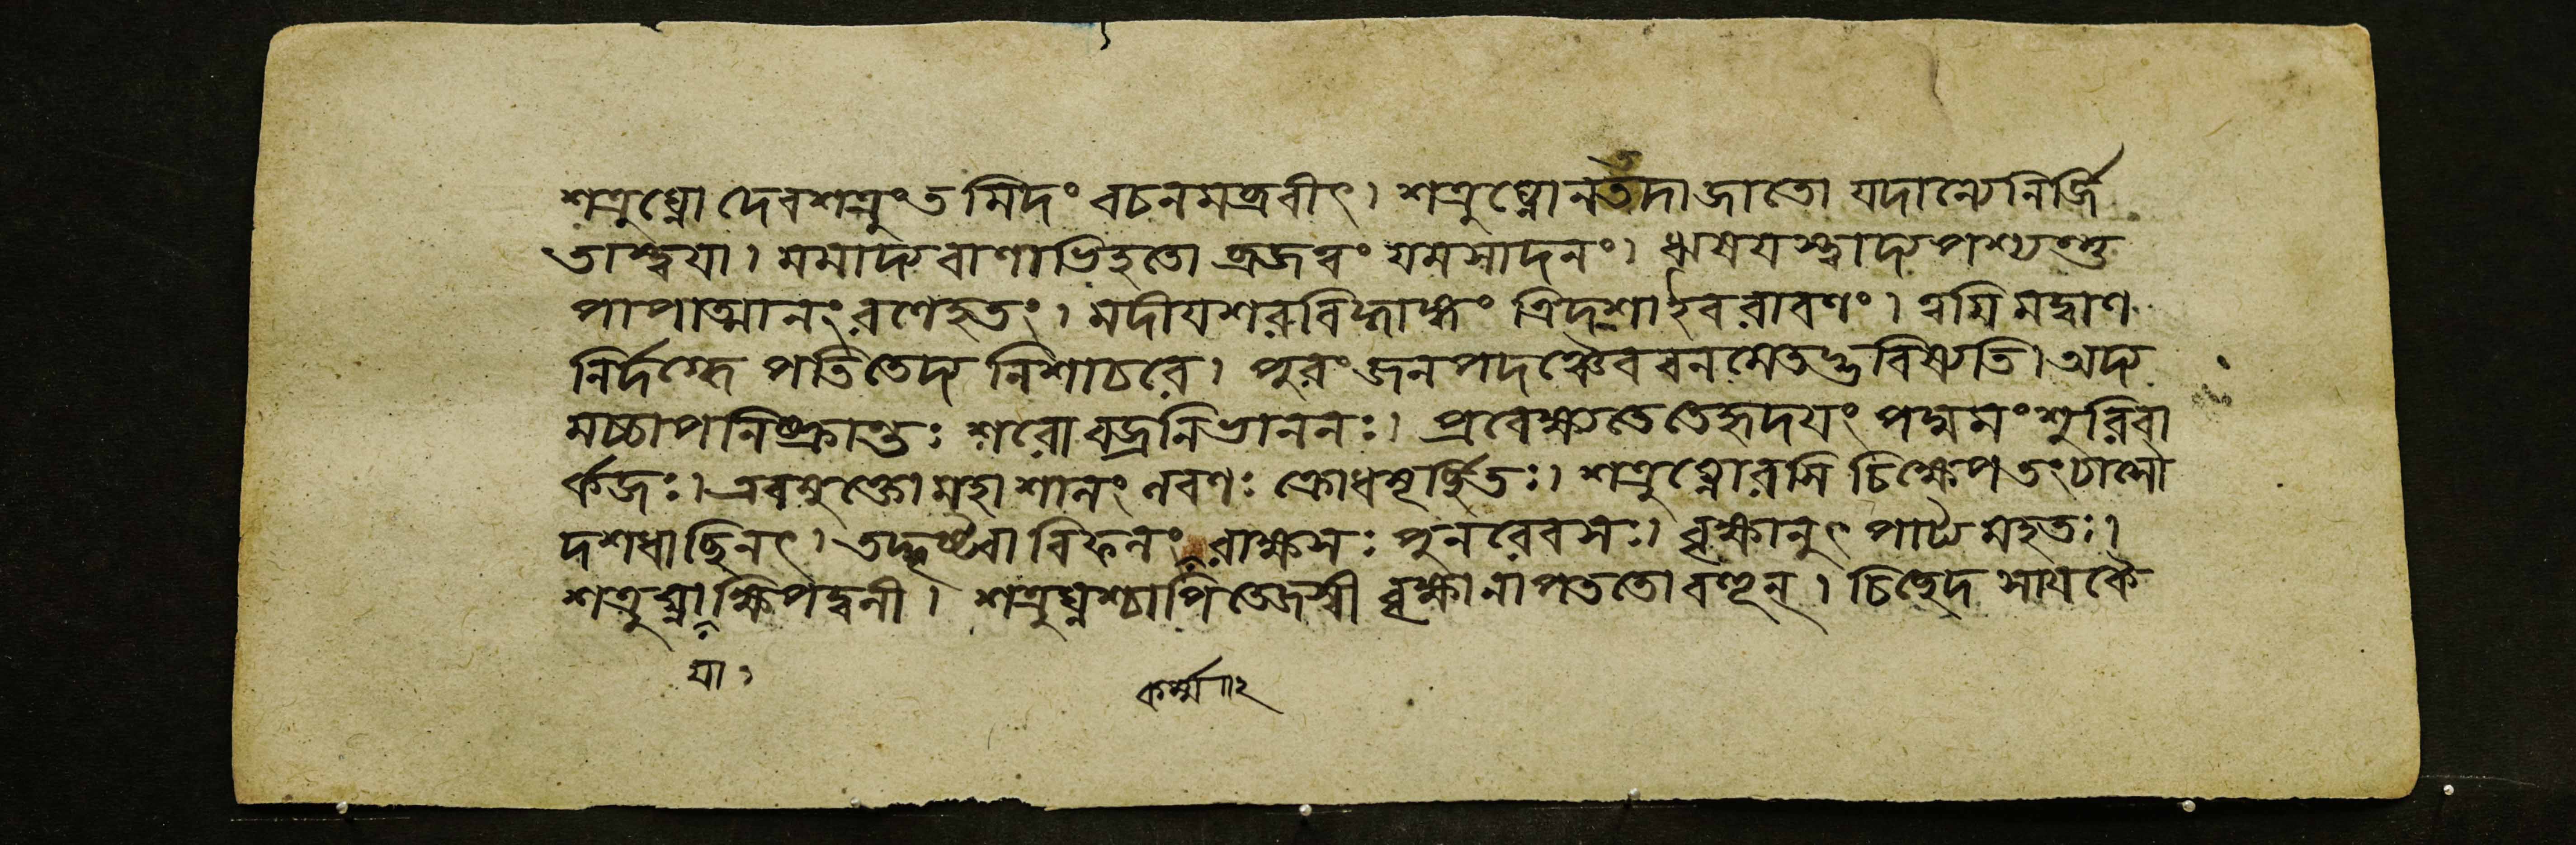 শত্রুঘ্নো দেবশত্রুং তমিদং বচনমব্রবীৎ। শত্রুঘ্নোনতদাজাতো যদান্যেনির্জি
তাস্ত্বযা। মমাদ্যবাণাভিহতো ব্রজত্বং যমসাদনং। ঋষযস্ত্বাদ্যপশ্যন্তু
পাপাত্মানং রণেহতং। মদীযশরবিদ্ধাঙ্গং ত্রিদশাইবরাবণং। ত্বযি মদ্বাণ
নির্দগ্ধে পতিতেদ্য নিশাচরে। পুরংজনপদঞ্চৈববনমেতদ্ভবিষ্যতি। অদ্য
মচ্চাপনিষ্ক্রান্তঃ শরোবজ্রনিভাননঃ। প্রবেক্ষ্যতেতেহৃদযং পদ্মমংশুরিবা
র্কজঃ। এবমুক্তো মহাশালং লবণঃ ক্রোধমূর্চ্ছিতঃ। শত্রুঘ্নোরসি চিক্ষেপ তং
দশধাছিনৎ। তদ্দৃষ্ট্বা বিফলং রাক্ষসঃ পুনরেবসঃ। বৃক্ষানুৎপাট্যমহতঃ।
শত্রুঘ্নাযাক্ষিপদ্বলী। শত্রুঘ্নশ্চাপিতেজস্বী বৃক্ষানাপততোবহূন্। চিচ্ছেদ সাযকৈ
যা